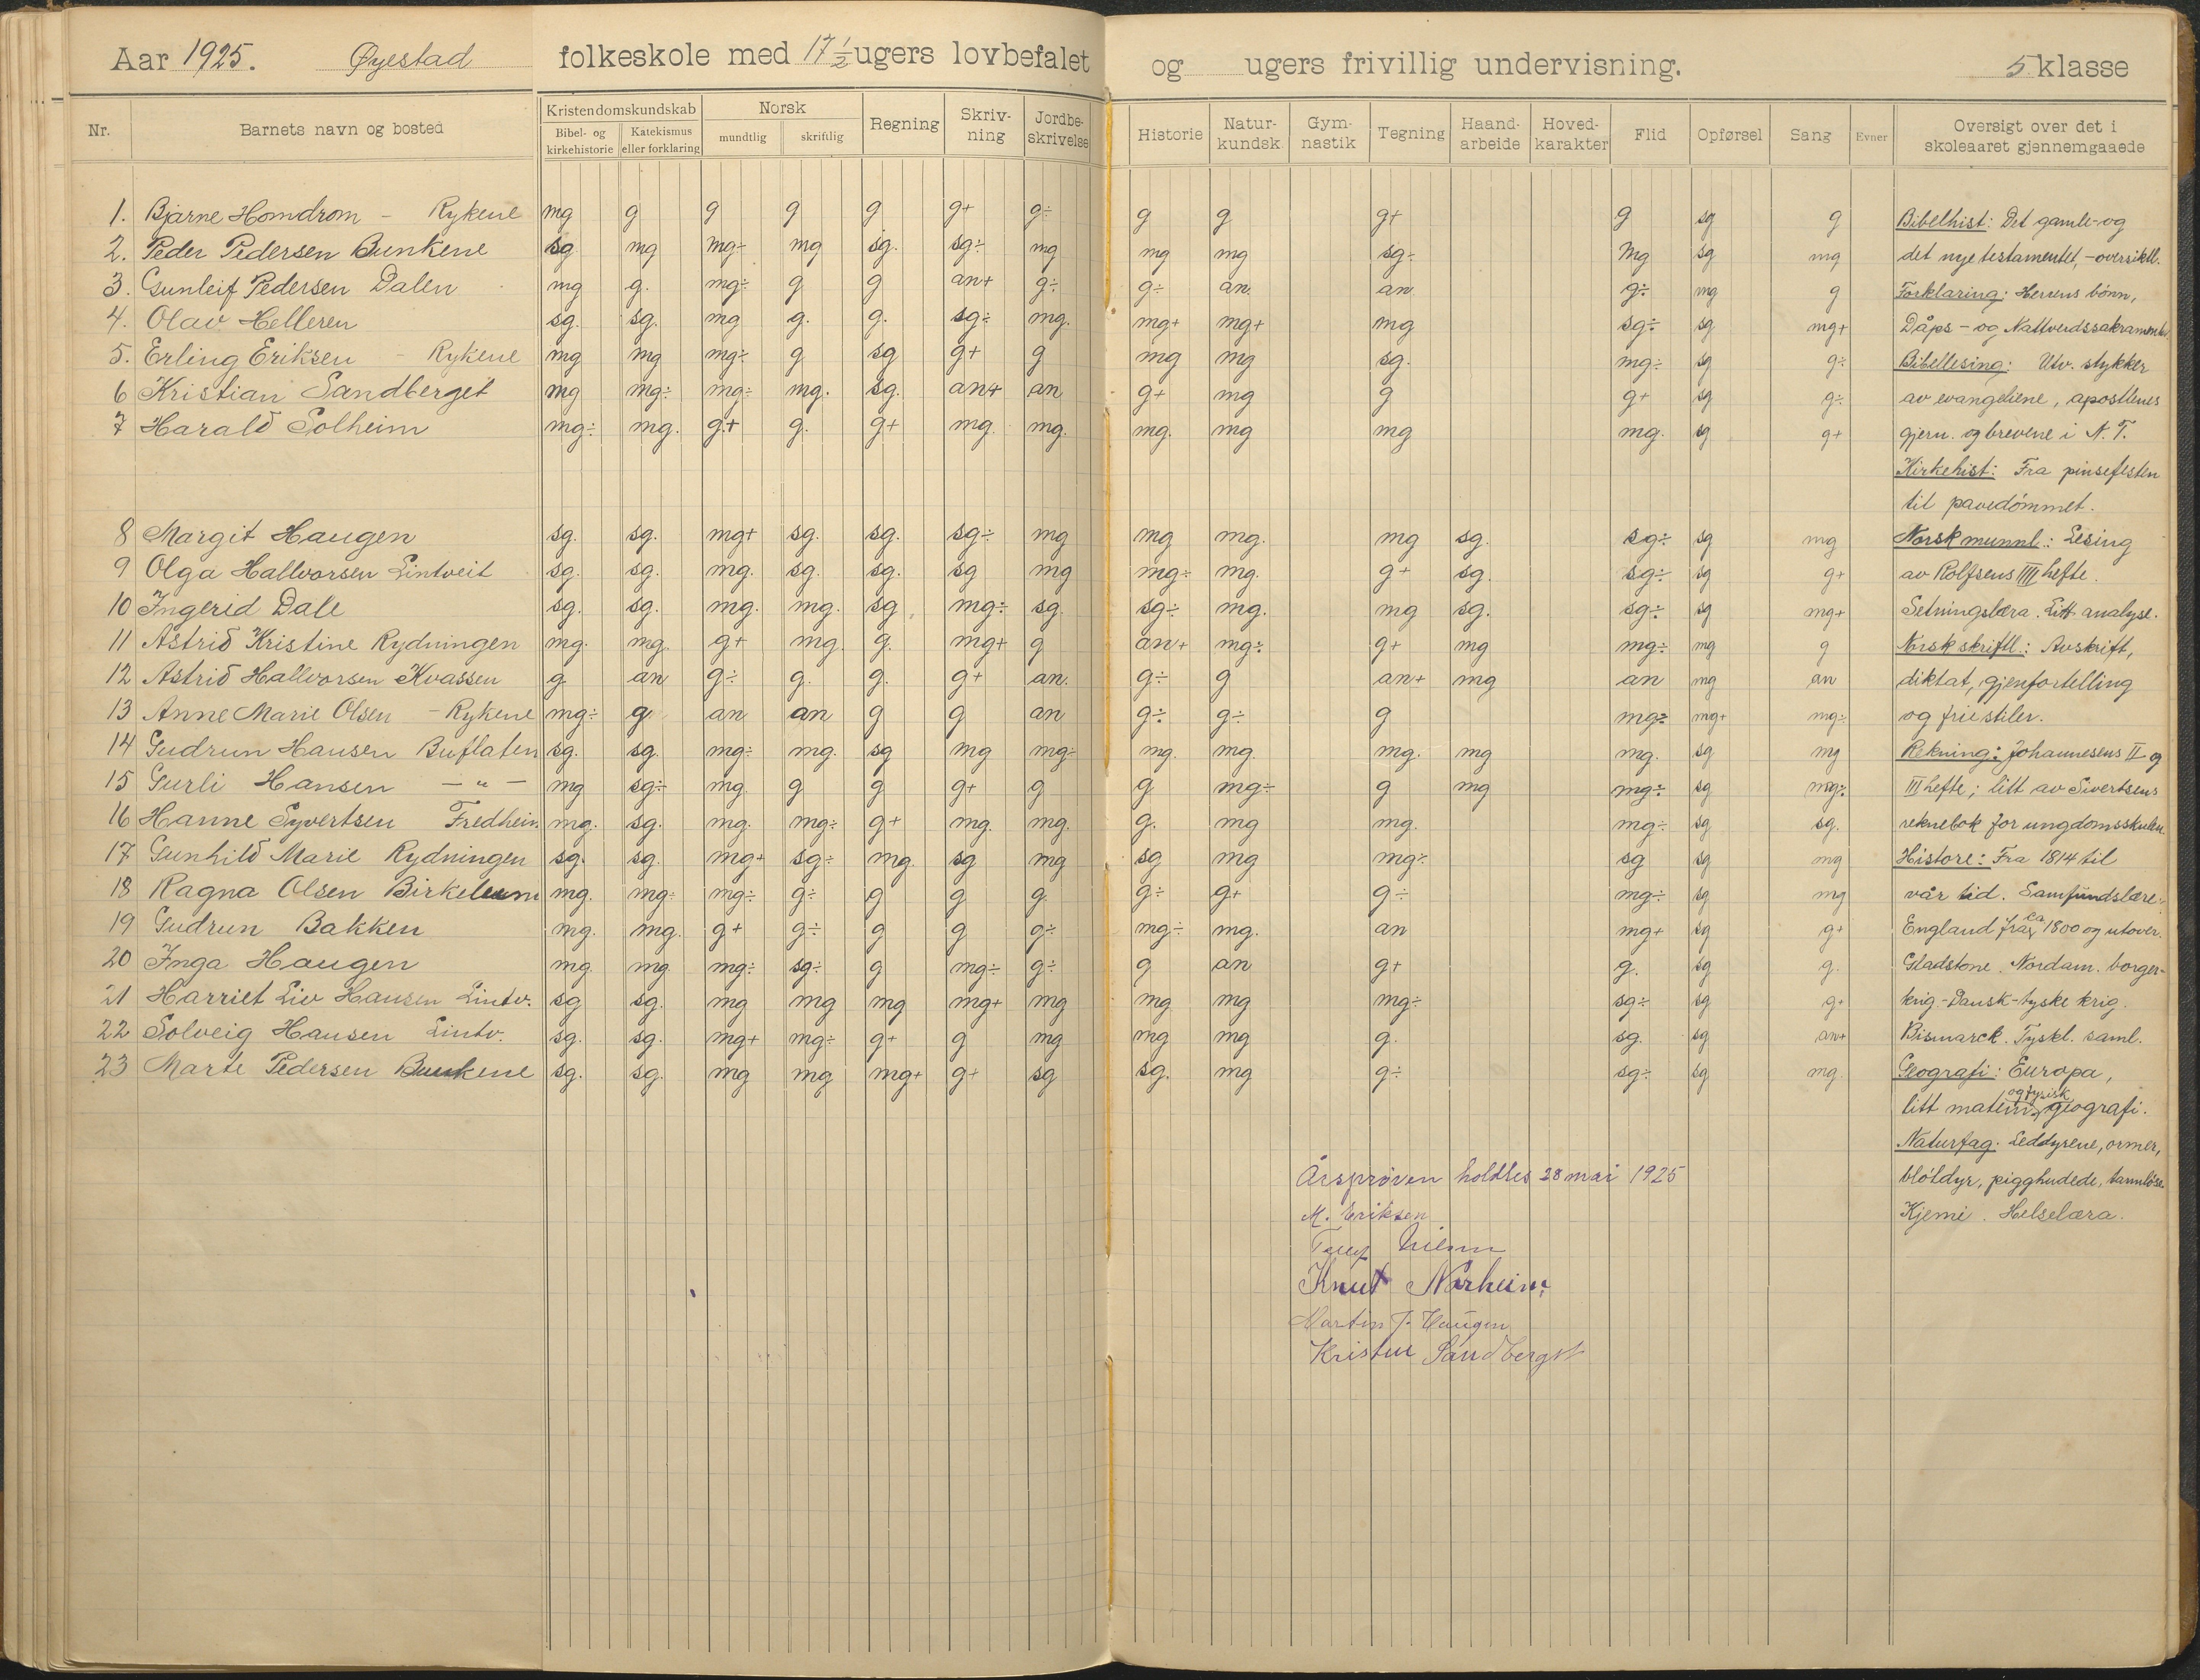 Aar 1925. Øyestad folkeskole med 17 ½ ugers lovbefalet og ugers frivillig undervisning. 5 klasse
Nr. Barnets navn og bosted Kristendomskundskab Bibel- og kirkehistorie Katekismus eller forklaring Norsk mundtlig skriftlig Regning Skriv-ning Jordbe-skrivelse Historie Natur-kundsk. Gym-nastik Tegning Haand-arbeide Hoved-karakter Flid Opførsel Sang Evner Oversigt over det i skoleaaret gjennemgaaede
1. Bjarne Homdrom - Rykene mg g g g g g+ g÷ g g g+ g sg g Bibelhist: Det gamle- og
2. Peder Pedersen Bunkene sg mg mg÷ mg sg. sg÷ mg mg mg sg÷ Mg sg mg det nye testamentet, - oversiktl.
3. Gunleif Pedersen Dalen mg g. mg÷ g g an+ g÷ g÷ an. an g÷ mg g Forklaring: Herrens bønn,
4. Olav Helleren sg. sg. mg g. g. sg÷ mg. mg+ mg+ mg sg÷ sg mg+ Dåps- og Nattverdssakramentet.
5. Erling Eriksen - Rykene mg mg mg÷ g sg g+ g mg mg sg. mg÷ sg g÷ Bibellesing: Utv. stykker
6 Kristian Sandberget mg mg÷ mg÷ mg. sg. an+ an g+ mg g g+ sg g÷ av evangeliene, apostlenes
7 Harald Solheim mg÷ mg. g+ g. g+ mg. mg. mg. mg mg mg. sg g+ gjern. og brevene i N. T.
Kirkehist: Fra pinsefesten
til pavedømmet.
8 Margit Haugen sg. sg. mg+ sg. sg. sg÷ mg mg mg. mg sg. sg÷ sg mg Norsk munnl.: Lesing
9 Olga Hallvorsen Lintveit sg. sg. mg. sg. sg. sg mg mg÷ mg. g+ sg. sg÷ sg g+ av Rolfsens IIII hefte.
10 Ingerid Dale sg. sg. mg. mg. sg. mg÷ sg. sg÷ mg. mg sg. sg÷ sg mg+ Setningslæra. Litt analyse.
11 Astrid Kristine Rydningen mg. mg. g+ mg. g. mg+ g an+ mg÷ g+ mg mg÷ mg g Norsk skriftl.: Avskrift,
12 Astrid Hallvorsen Kvassen g. an g÷ g. g. g+ an. g÷ g an+ mg an mg an diktat, gjenfortelling
13 Anne Marie Olsen - Rykene mg÷ g an an g g an g÷ g÷ g mg÷ mg+ mg÷ og frie stiler.
14 Gudrun Hansen Buflaten sg. sg. mg÷ mg. sg mg mg÷ mg. mg. mg. mg mg. sg mg Rekning: Johannesens II og
15 Gurli Hansen - " - mg sg÷ mg. g g g+ g g mg÷ g mg mg÷ sg mg÷ III hefte; litt av Sivertsens
16 Hanne Syvertsen Fredheim mg. sg. mg. mg÷ g+ mg. mg. g. mg mg. mg÷ sg sg. reknebok for ungdomsskulen
17 Gunhild Marie Rydningen sg. sg. mg+ sg÷ mg. sg mg sg mg mg÷ sg sg mg Histore: Fra 1814 til
18 Ragna Olsen Birkelunn mg. mg÷ mg÷ g÷ g g g. g÷ g+ g÷ mg÷ sg mg vår tid. Samfundslære:
19 Gudrun Bakken mg. mg. g+ g÷ g g g÷ mg÷ mg. an mg+ sg g+ England fra ca 1800 og utover.
20 Inga Haugen mg. mg mg÷ sg÷ g mg÷ g÷ g an g+ g. sg g. Gladstone. Nordam. borger-
21 Harriet Liv Hansen Lintv. sg sg. mg mg mg mg+ mg mg mg mg÷ sg÷ sg g+ krig - Dansk-tyske krig.
22 Solveig Hansen Lintv. sg. sg. mg+ mg÷ g+ g mg mg mg g. sg. sg an+ Bismarck. Tyskl. saml.
23 Marte Pedersen Bunkene sg. sg. mg mg mg+ g+ sg sg. mg g÷ sg÷ sg mg. Geografi: Europa,
litt matem. og fysisk geografi.
Naturfag: Leddyrene, ormer,
bløtdyr, pigghudede, tannløse.
Kjemi. Helselæra.
Årsprøven holdtes 28 mai 1925
M. Eriksen
Knut Norheim
Martin J. Haugen
Sandberget